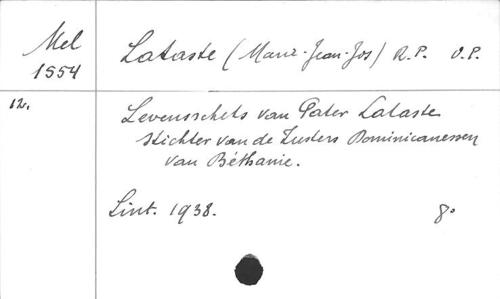 Mel
1554
Lataste (Marie-Jean-Jos) R.P. O.P.
12.
Levensschets van Pater Lataste
stichter van de Zusters Dominicanessen
van Béthanie.
Lint. 1938. 8°